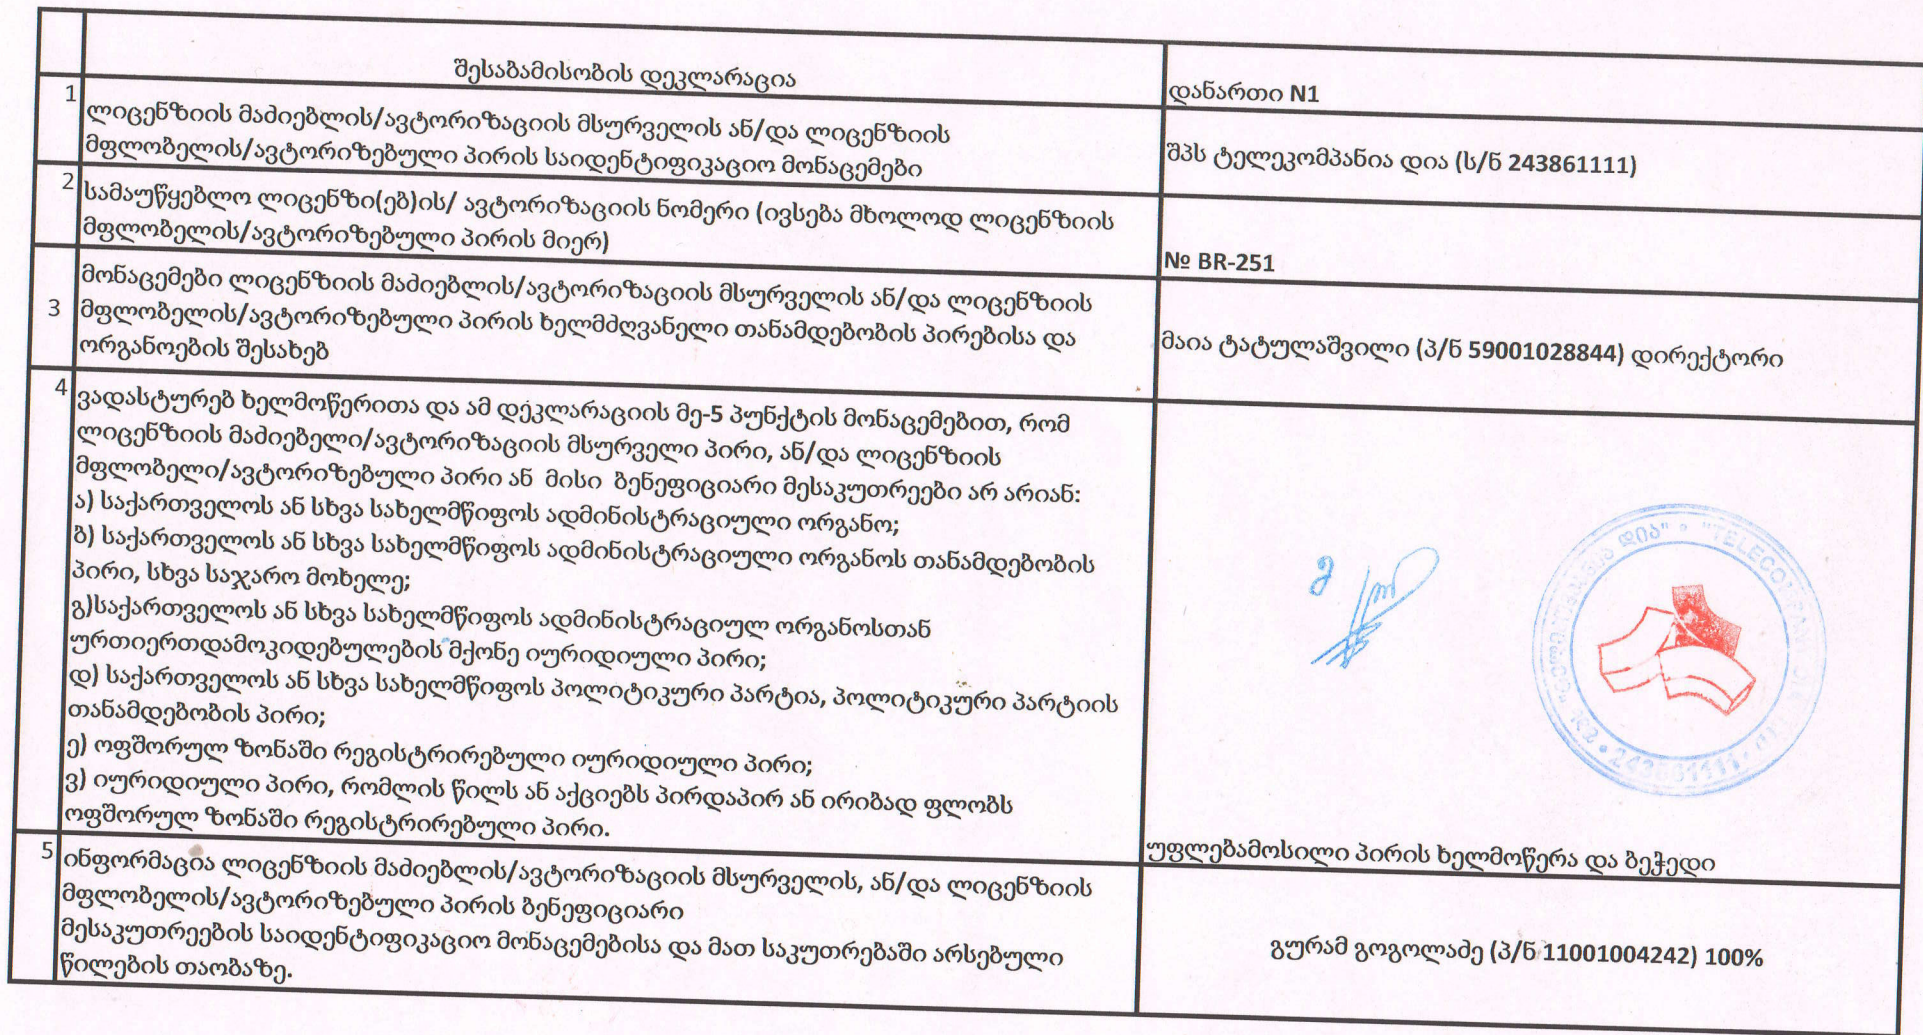 შესაბამისობის დეკლარაცია
დანართი N1
1
ლიცენზიის მაძიებლის/ავტორიზაციის მსურველის ან/და ლიცენზიის
მფლობელის/ავტორიზებული პირის საიდენტიფიკაციო მონაცემები
შპს ტელეკომპანია დია (ს/ნ 243861111)
2
სამაუწყებლო ლიცენზი(ებ)ის/ ავტორიზაციის ნომერი (ივსება მხოლოდ ლიცენზიის
მფლობელის/ავტორიზებული პირის მიერ)
№ BR-251
3
მონაცემები ლიცენზიის მაძიებლის/ავტორიზაციის მსურველის ან/და ლიცენზიის
მფლობელის/ავტორიზებული პირის ხელმძღვანელი თანამდებობის პირებისა და
ორგანოების შესახებ
მაია ტატულაშვილი (პ/ნ 59001028844) დირექტორი
4
ვადასტურებ ხელმოწერითა და ამ დეკლარაციის მე-5 პუნქტის მონაცემებით, რომ
ლიცენზიის მაძიებელი/ავტორიზაციის მსურველი პირი, ან/და ლიცენზიის
მფლობელი/ავტორიზებული პირი ან მისი ბენეფიციარი მესაკუთრეები არ არიან:
ა) საქართველოს ან სხვა სახელმწიფოს ადმინისტრაციული ორგანო;
ბ) საქართველოს ან სხვა სახელმწიფოს ადმინისტრაციული ორგანოს თანამდებობის
პირი, სხვა საჯარო მოხელე;
გ)საქართველოს ან სხვა სახელმწიფოს ადმინისტრაციულ ორგანოსთან
ურთიერთდამოკიდებულების მქონე იურიდიული პირი;
დ) საქართველოს ან სხვა სახელმწიფოს პოლიტიკური პარტია, პოლიტიკური პარტიის
თანამდებობის პირი;
ე) ოფშორულ ზონაში რეგისტრირებული იურიდიული პირი;
ვ) იურიდიული პირი, რომლის წილს ან აქციებს პირდაპირ ან ირიბად ფლობს
ოფშორულ ზონაში რეგისტრირებული პირი.
დია" "TELECOMPANY
243861111
უფლებამოსილი პირის ხელმოწერა და ბეჭედი
5
ინფორმაცია ლიცენზიის მაძიებლის/ავტორიზაციის მსურველის, ან/და ლიცენზიის
მფლობელის/ავტორიზებული პირის ბენეფიციარი
მესაკუთრეების საიდენტიფიკაციო მონაცემებისა და მათ საკუთრებაში არსებული
წილების თაობაზე.
გურამ გოგოლაძე (პ/ნ 11001004242) 100%